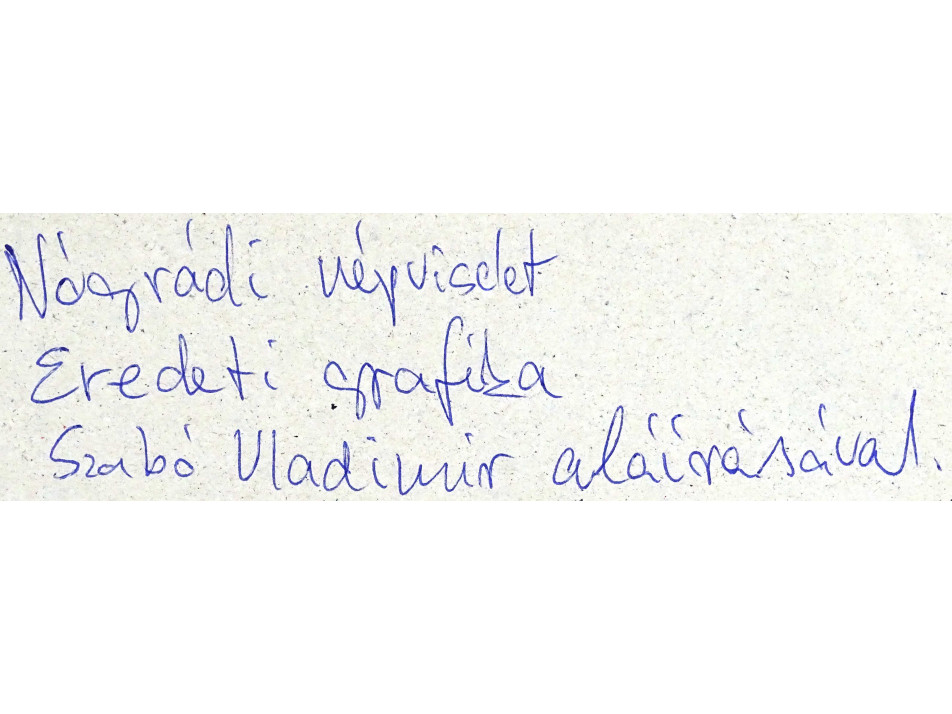 Nógrádi népviselet
Eredeti grafika
Szabó Vladimir aláírásával.